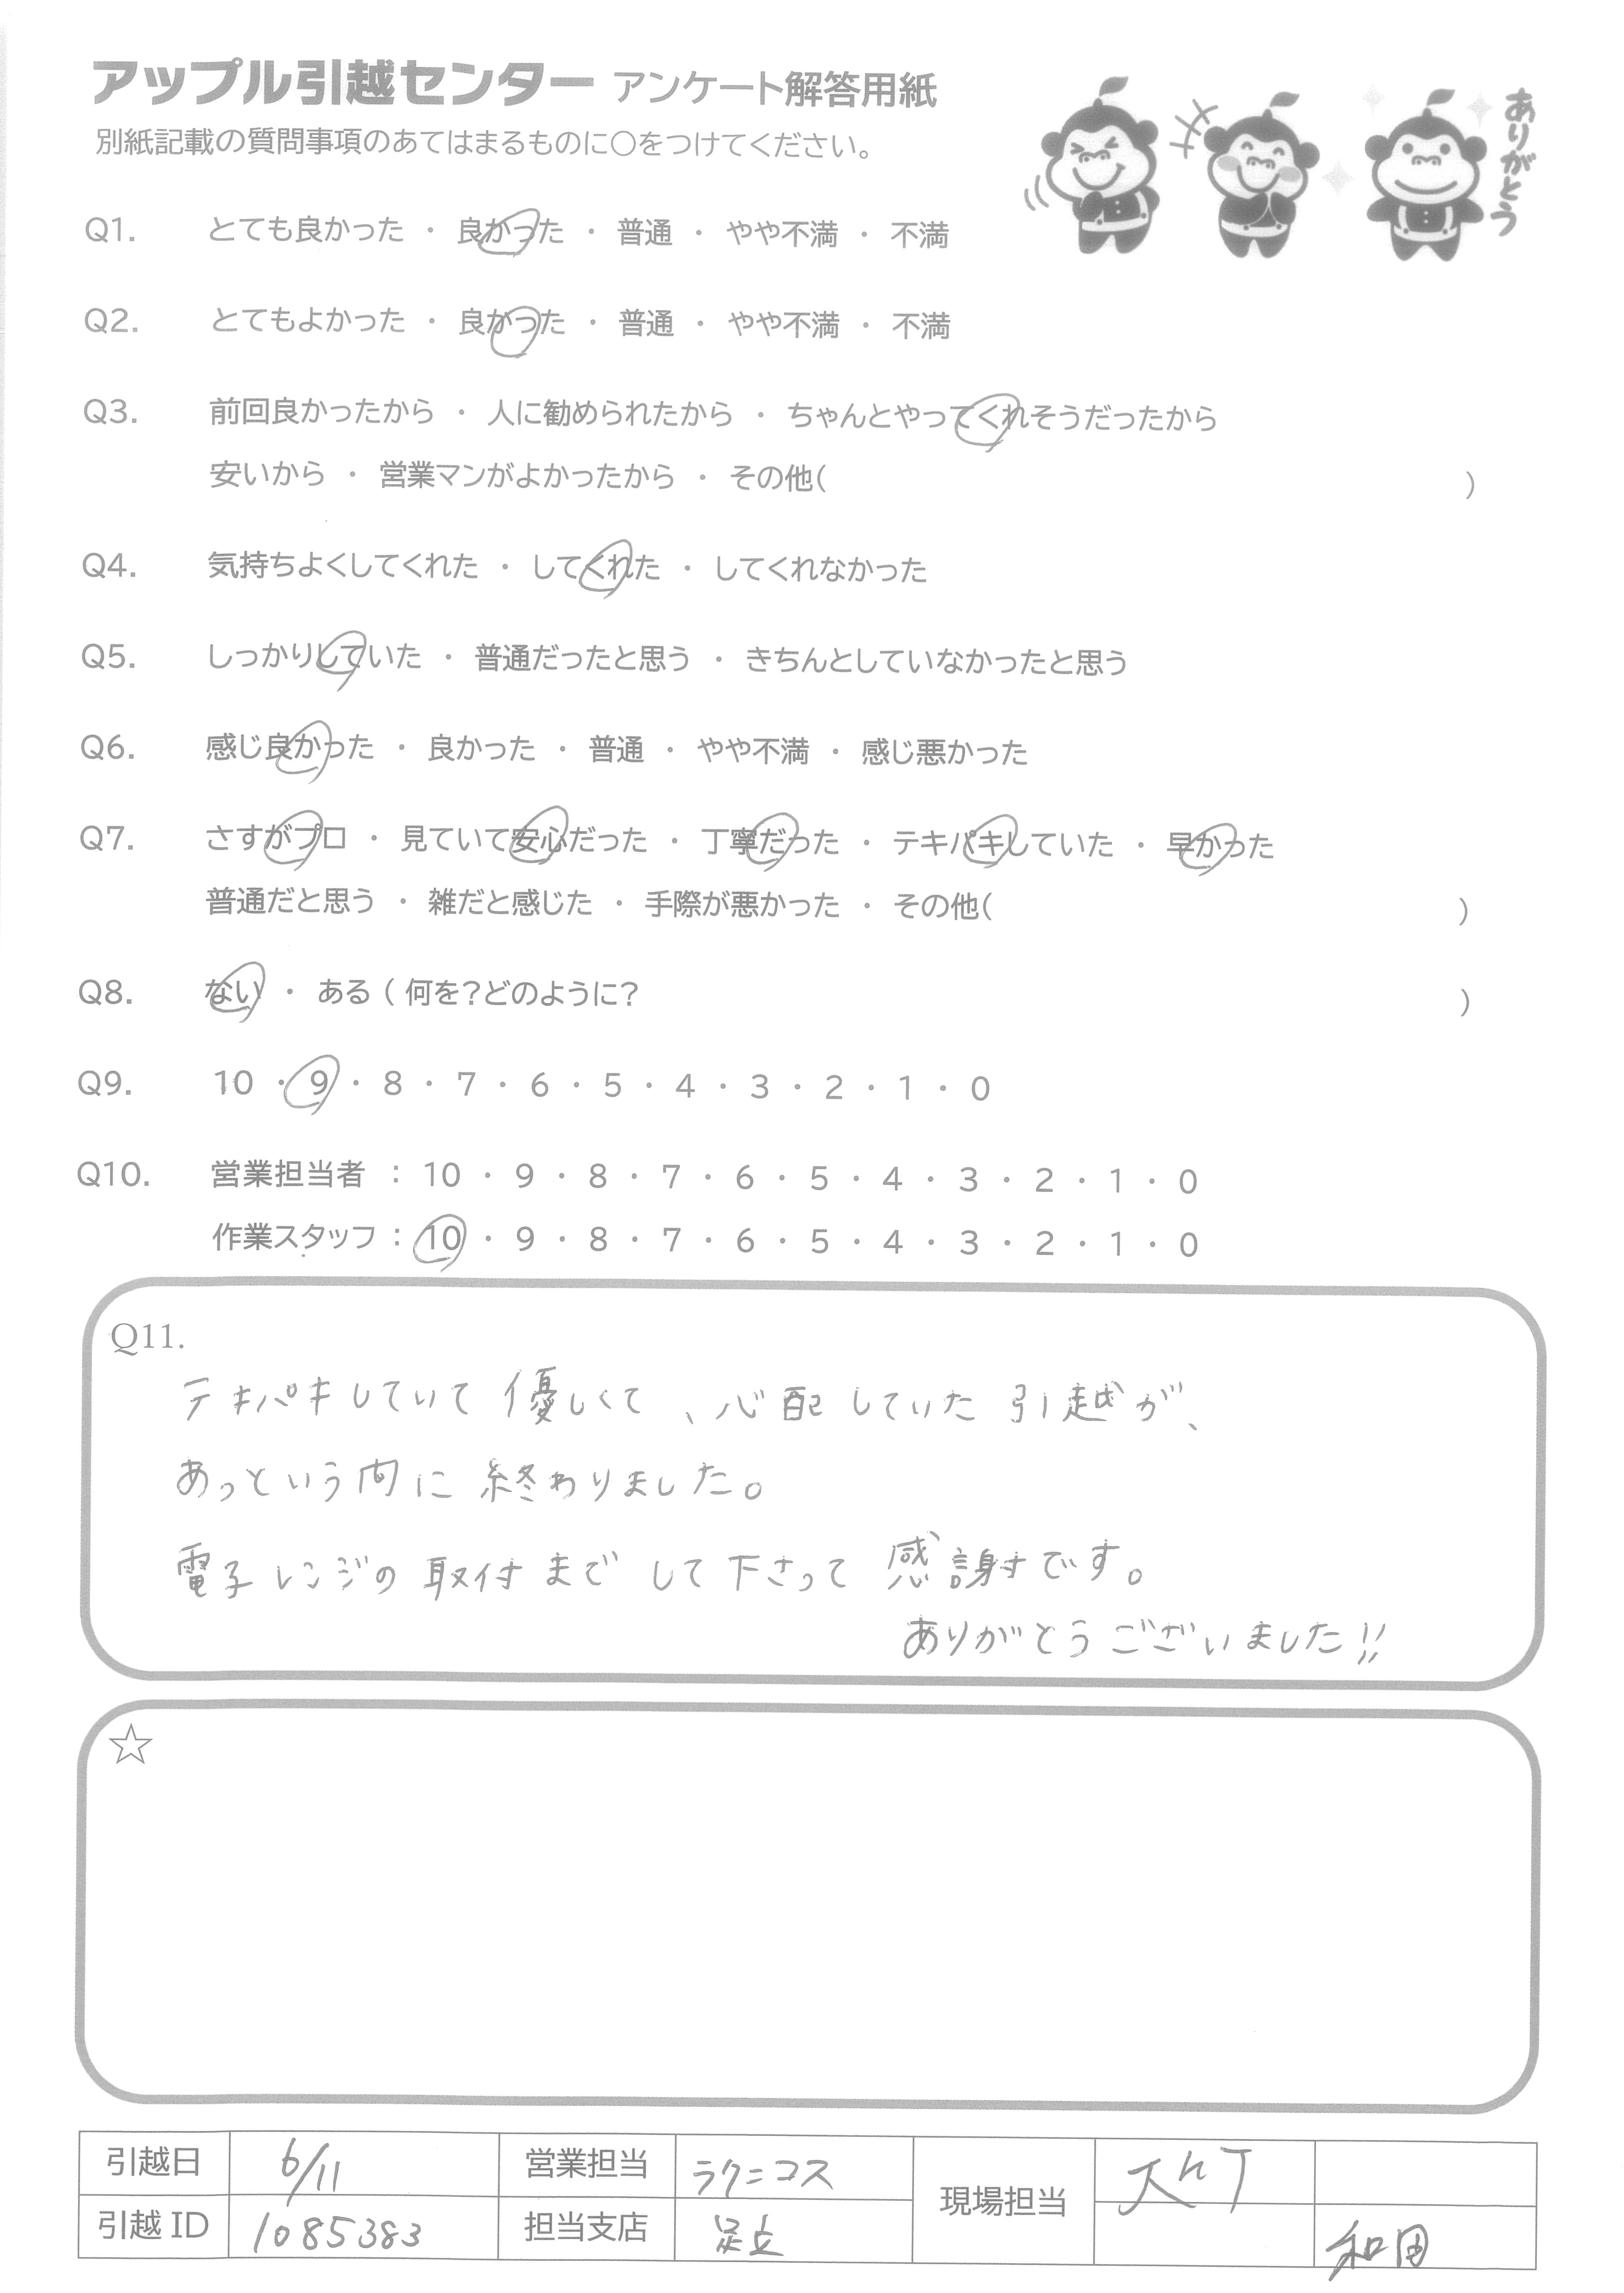 アップル引越センター アンケート解答用紙
別紙記載の質問事項のあてはまるものに○をつけてください。
ありがとう
Q1. とても良かった ・ 良かった ・ 普通 ・ やや不満 ・ 不満
Q2. とてもよかった ・ 良かった ・ 普通 ・ やや不満 ・ 不満
Q3. 前回良かったから ・ 人に勧められたから ・ ちゃんとやってくれそうだったから
安いから ・ 営業マンがよかったから ・ その他( )
Q4. 気持ちよくしてくれた ・ してくれた ・ してくれなかった
Q5. しっかりしていた ・ 普通だったと思う ・ きちんとしていなかったと思う
Q6. 感じ良かった ・ 良かった ・ 普通 ・ やや不満 ・ 感じ悪かった
Q7. さすがプロ ・ 見ていて安心だった ・ 丁寧だった ・ テキパキしていた ・ 早かった
普通だと思う ・ 雑だと感じた ・ 手際が悪かった ・ その他( )
Q8. ない ・ ある ( 何を?どのように? )
Q9. 10 ・ 9 ・ 8 ・ 7 ・ 6 ・ 5 ・ 4 ・ 3 ・ 2 ・ 1 ・ 0
Q10. 営業担当者 : 10 ・ 9 ・ 8 ・ 7 ・ 6 ・ 5 ・ 4 ・ 3 ・ 2 ・ 1 ・ 0
作業スタッフ : 10 ・ 9 ・ 8 ・ 7 ・ 6 ・ 5 ・ 4 ・ 3 ・ 2 ・ 1 ・ 0
Q11.
テキパキしていて優しくて、心配していた引越が、
あっという間に終わりました。
電子レンジの取付までして下さって感謝です。
ありがとうございました!!
☆
引越日 6/11 営業担当 ラクニコス 現場担当
引越 ID 1085383 担当支店 足立 和田